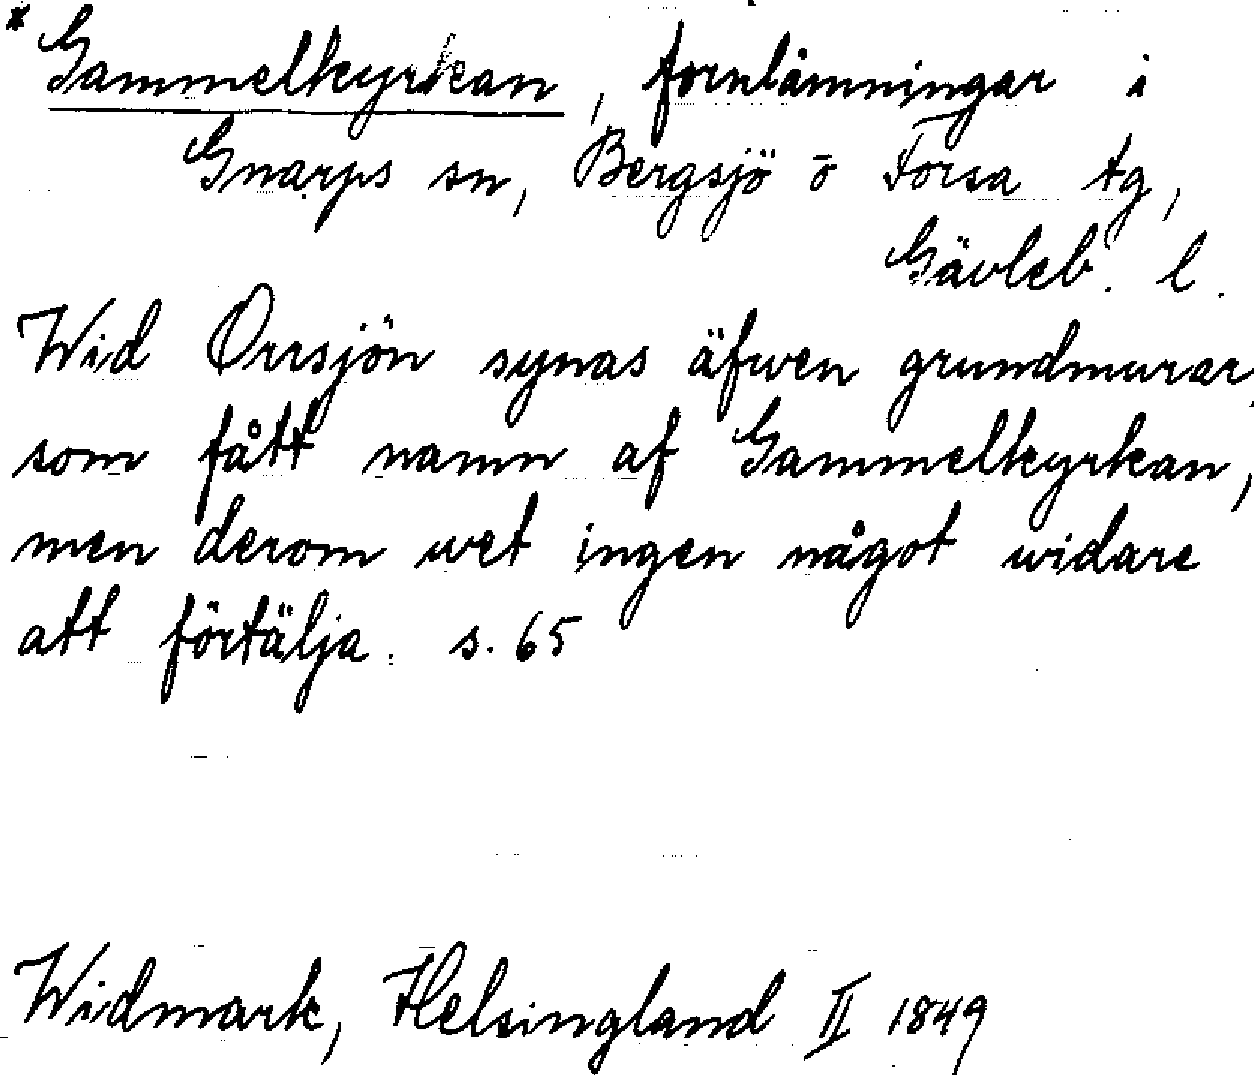 * Gammelkyrkan, fornlämningar i
Gnarps sn, Bergsjö o Forsa tg,
Gävleb. l.
Wid Orrsjön synas äfwen grundmurar,
som fått namn af Gammelkyrkan,
men derom wet ingen något widare
att förtälja. s. 65
Widmark, Helsingland II 1849